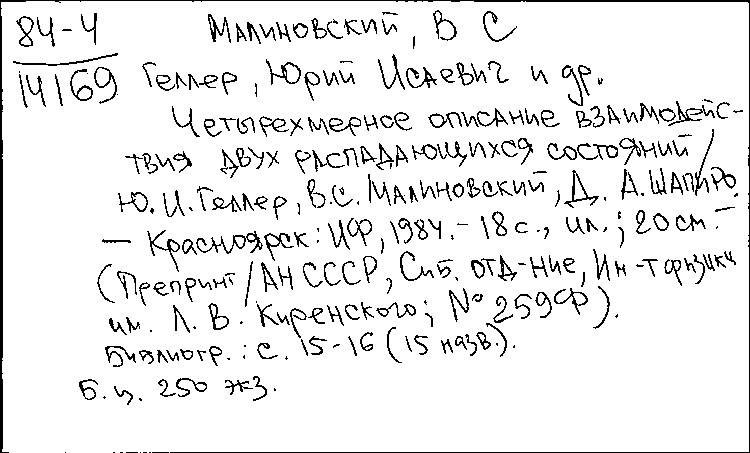 84-4 Малиновский, В С
14169 Геллер, Юрий Исаевич и др.
Четырехмерное описание взаимодейс-
твия двух распадающихся состояний /
Ю.И. Геллер, В.С. Малиновский, Д. А. Шапиро.
— Красноярск: ИФ, 1984. - 18 с., ил.; 20 см. -
(Препринт / АН СССР, Сиб. отд-ние, Ин-т физики
им. Л. В. Киренского; № 259Ф).
Библиогр.: с. 15-16 (15 назв.).
Б. ц. 250 экз.